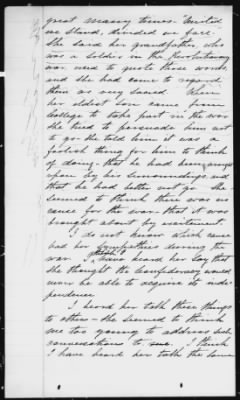 great many times. "United
we stand, divided we fall."
She said her grandfather, who
was a soldier in the Revolutionary
war used to quote those words,
and she had come to regard
them as very sacred. When
her eldest son came from
College to take part in the war
she tried to persuade him not
to go. She told him it was a
foolish thing for him to think
of doing - that he had been
upon by his surroundings and
that he had better not go. She
seemed to think there was no
cause for the war - that it was
brought about by excitement.
I do not know which cause
had her sympathies during the
war. I have heard her say that
she thought the Confederacy would
never be able to acquire its inde-
pendence.
I heard her talk these things
to others - she seemed to think
me too young to address such
conversations to me. I think
I have heard her talk the same